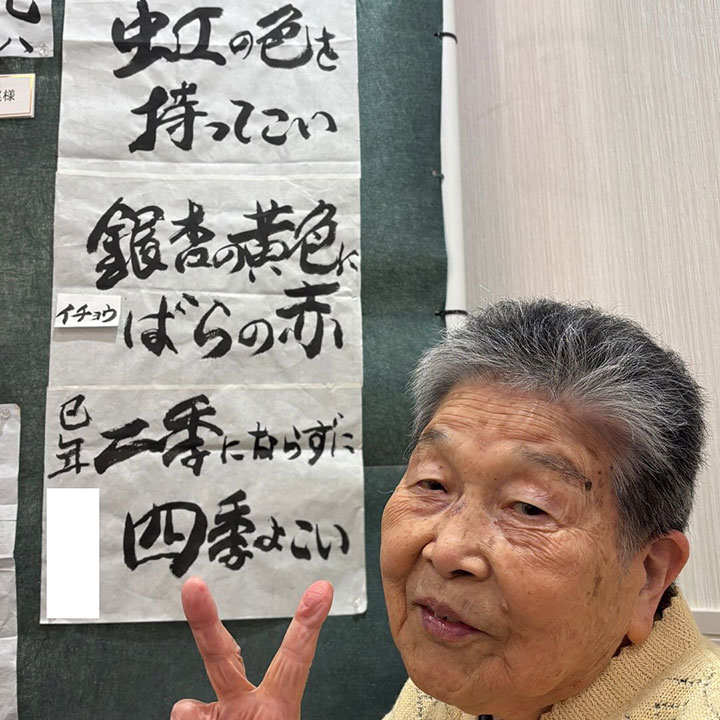 虹の色を
持ってこい
銀杏の黄色に
イチョウ
ばらの赤
巳年
二季にならずに
四季よこい
様